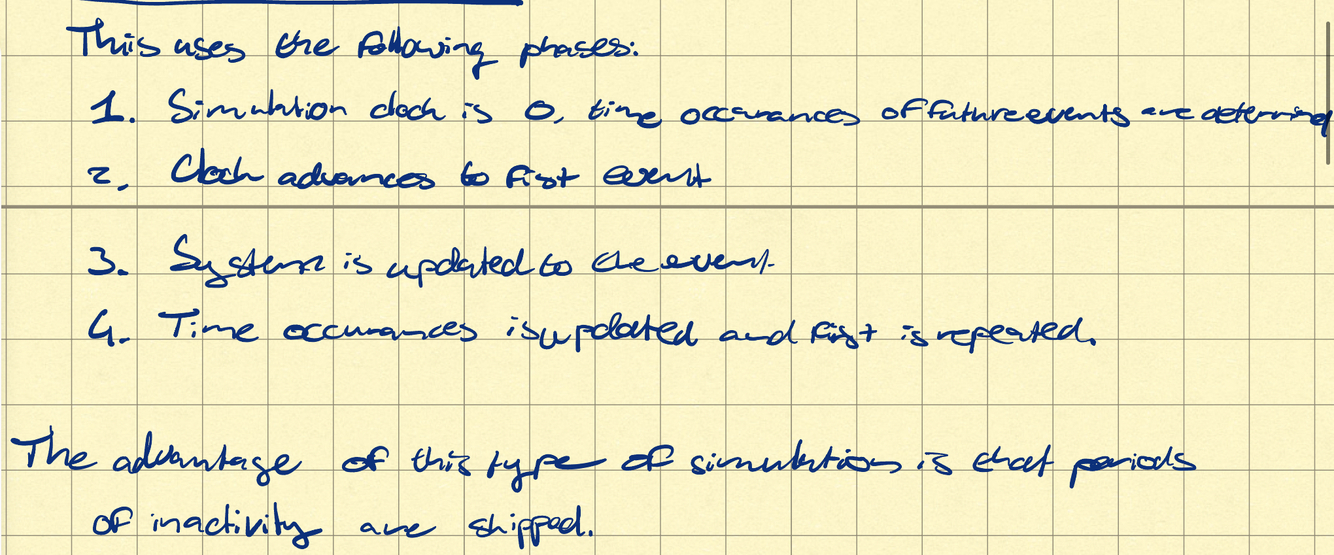 This uses the following phases:
1. Simulation clock is 0, time occurances of future events are determined
2. Clock advances to first event
3. System is updated to the event
4. Time occurances is updated and first is repeated.
The advantage of this type of simulation is that periods
of inactivity are skipped.